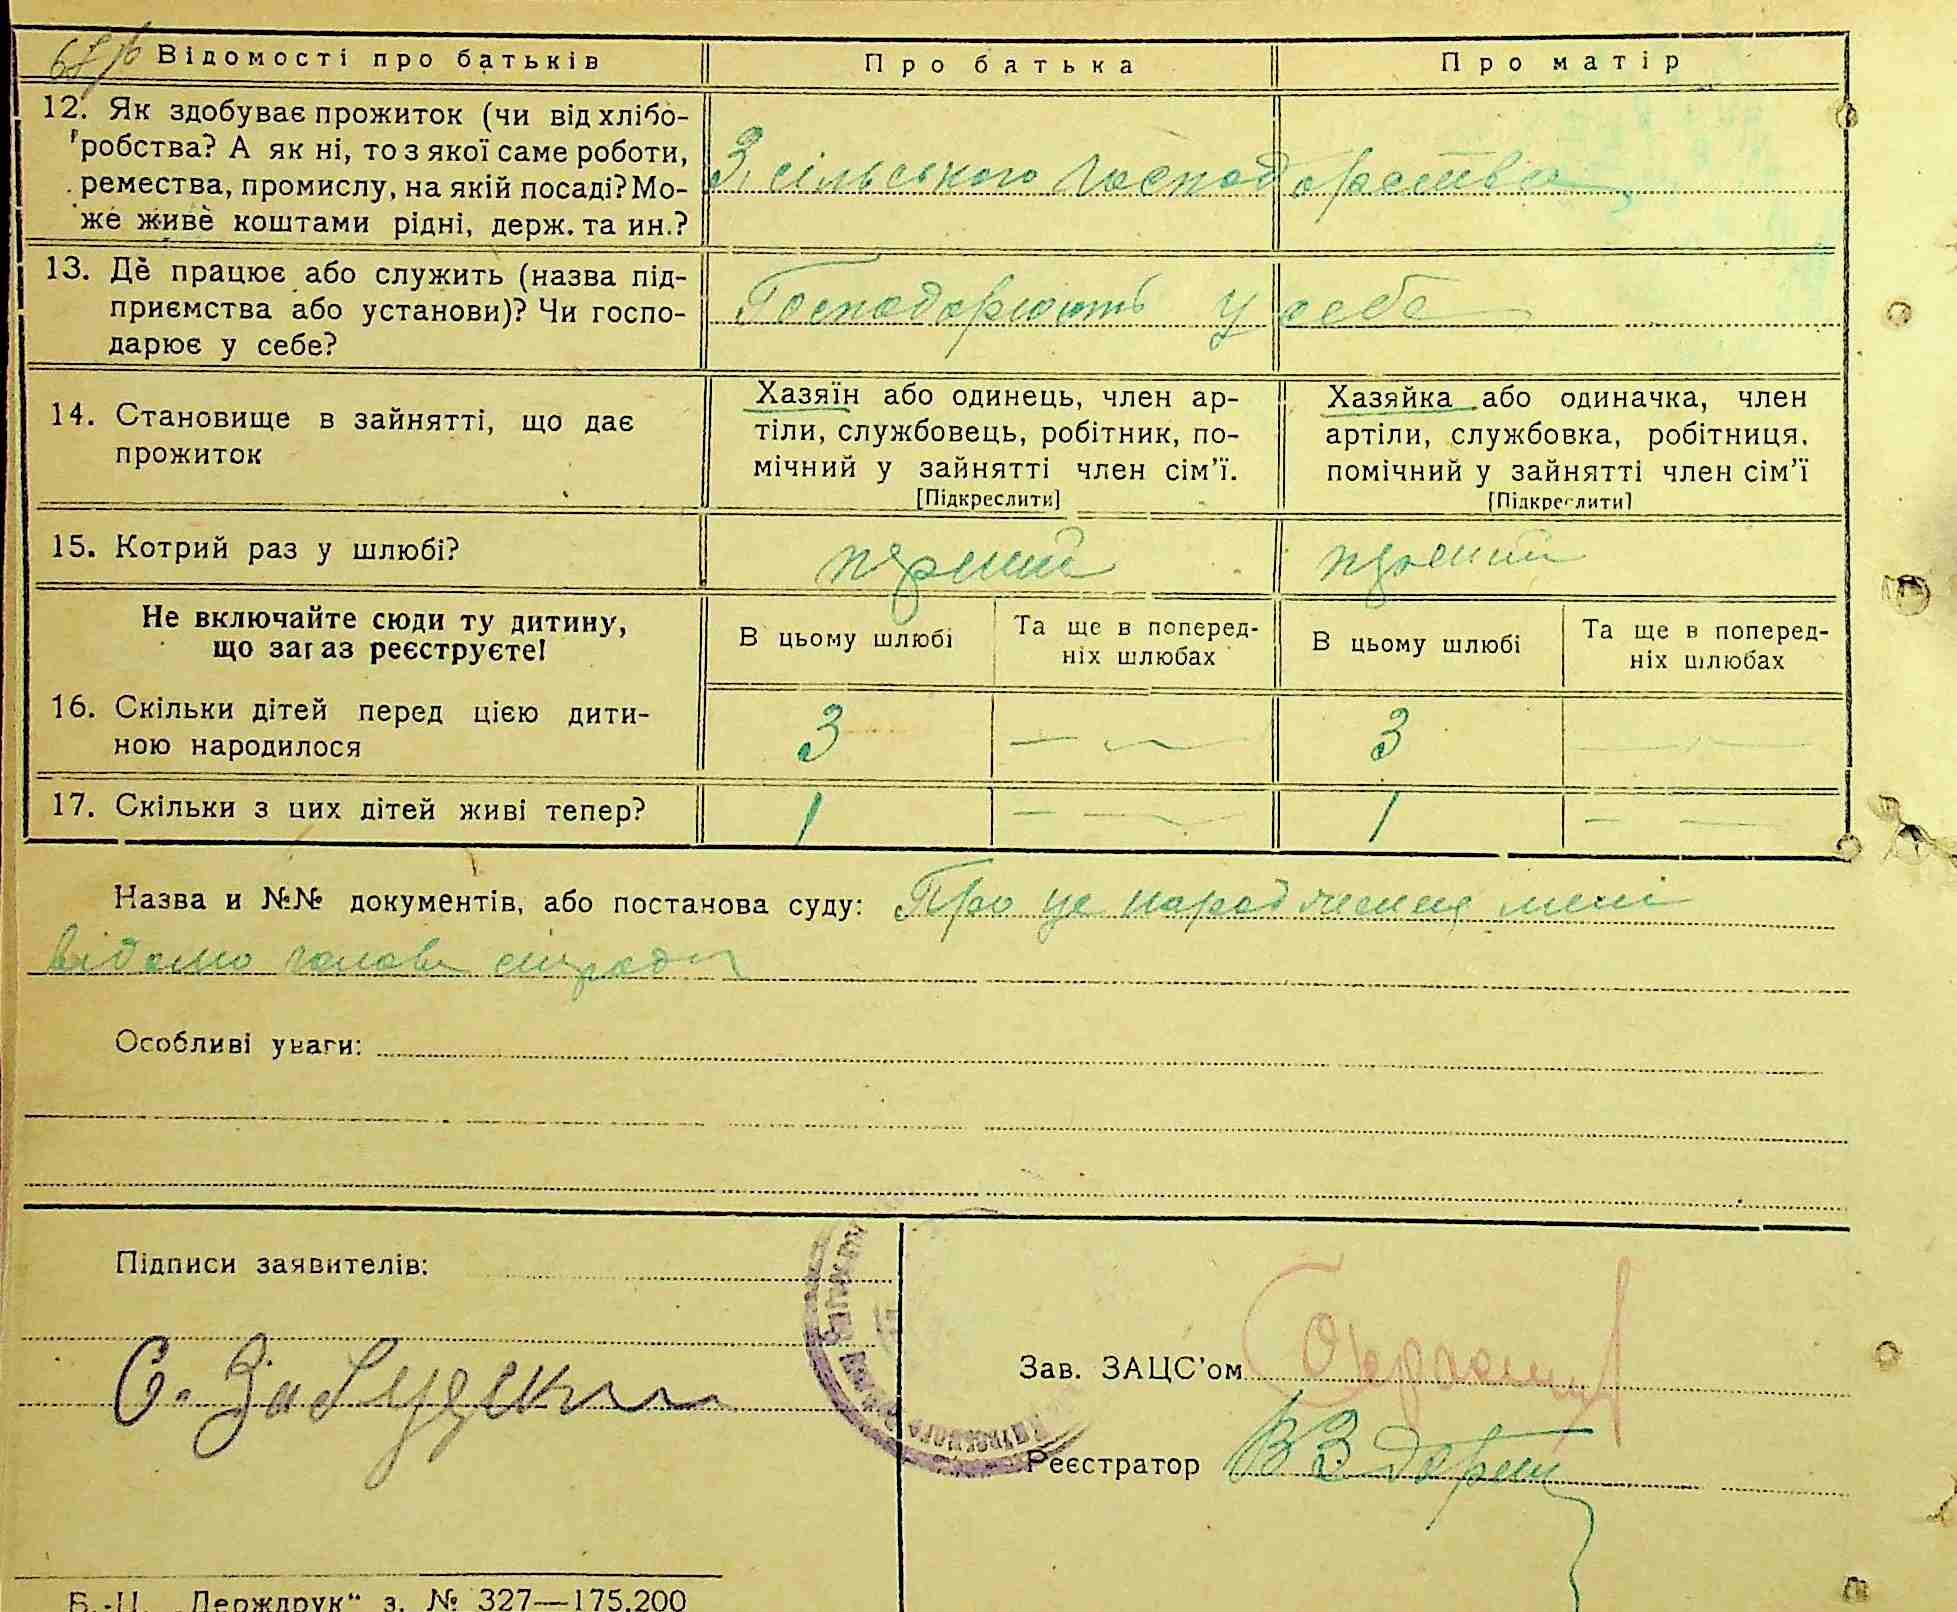 Відомості про батьків
Про батька
Про матір
12. Як здобуває прожиток (чи від хлібо-
робства? А як ні, то з якої саме роботи,
ремества, промислу, на якій посаді? Мо-
же живе коштами рідні, держ. та ин.?
З сільського господарства
13. Де працює або служить (назва під-
приємства або установи)? Чи госпо-
дарює у себе?
Господарюють у себе
14. Становище в зайнятті, що дає
прожиток
Хазяїн або одинець, член ар-
тіли, службовець, робітник, по-
мічний у зайнятті член сім'ї.
[Підкреслити]
Хазяйка або одиначка, член
артіли, службовка, робітниця,
помічний у зайнятті член сім'ї
[Підкреслити]
15. Котрий раз у шлюбі?
перший
перший
Не включайте сюди ту дитину,
що зараз реєструєте!
В цьому шлюбі
Та ще в поперед-
ніх шлюбах
В цьому шлюбі
Та ще в поперед-
ніх шлюбах
16. Скільки дітей перед цією дити-
ною народилося
3 — 3 —
17. Скільки з цих дітей живі тепер?
1 — 1 —
Назва и №№ документів, або постанова суду: Про це народження мені
відомо голова сільради
Особливі уваги:
Підписи заявителів:
Зав. ЗАЦС'ом
Реєстратор
Б.-Ц. „Держдрук“ з. № 327—175.200